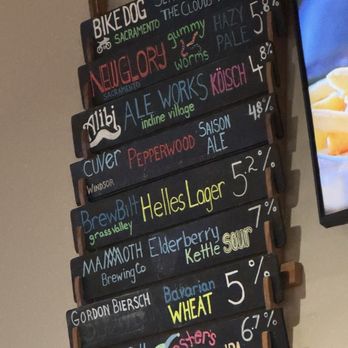 BIKE DOG
SACRAMENTO
THE CLOUDS
5%
NEW GLORY
SACRAMENTO
gummy
worms
HAZY
PALE
5.8%
Alibi ALE WORKS KÖLSCH 4.8%
incline village
CUVER PEPPERWOOD SAISON
ALE
4.8%
WINDSOR
BrewBilt Helles Lager 5.2%
grass valley
MAMMOTH
Brewing Co
Elderberry
Kettle Sour
7%
GORDON BIERSCH Bavarian
WHEAT
5%
6.7%